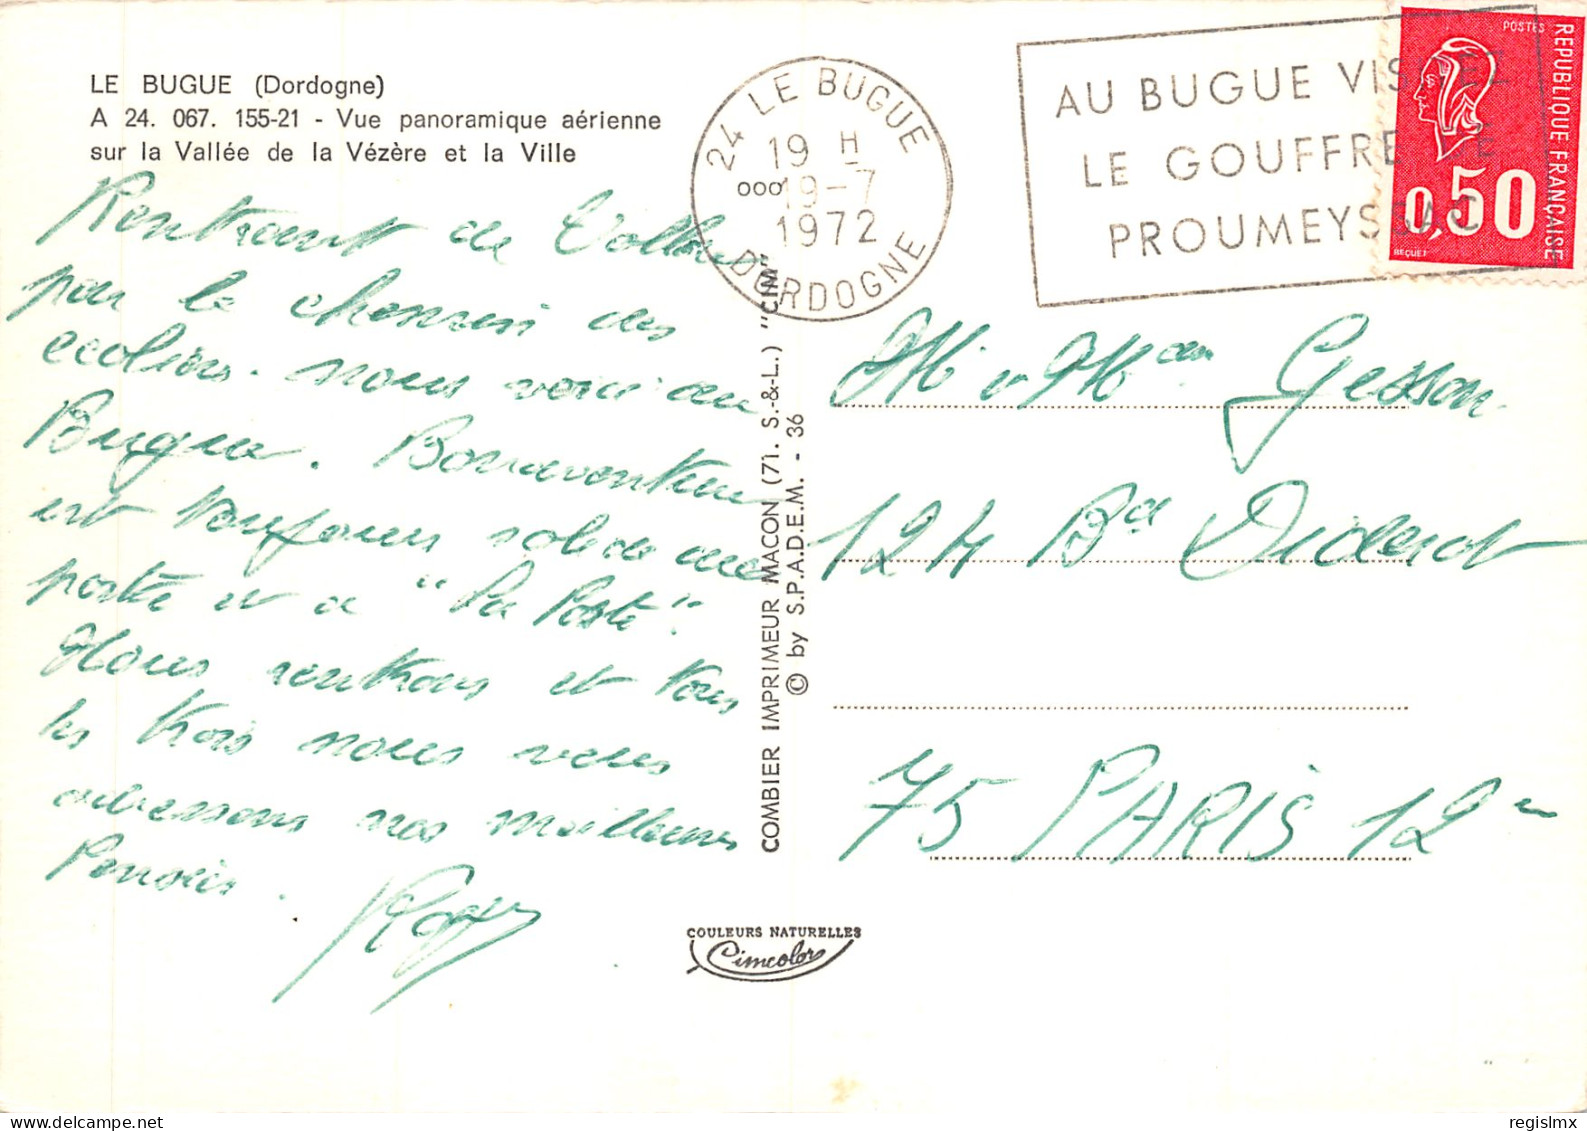 LE BUGUE (Dordogne)
A 24. 067. 155-21 - Vue panoramique aérienne
sur la Vallée de la Vézère et la Ville
Rentrant de
par le chemin des
ecoliers. nous voici au
Bugue. Bonaventure
est toujours solide au
poste et a "La Poste".
Nous rentrons et tous
les trois nous vous
adressons nos meilleures
Pensées.
24 LE BUGUE
19 H
19-7
1972
DORDOGNE
AU BUGUE VISITEZ
LE GOUFFRE DE
PROUMEYSSAC
POSTES
REPUBLIQUE FRANÇAISE
0,50
BEQUET
M v Mme Gesson
124 Bd Diderot
75 PARIS 12e
COMBIER IMPRIMEUR MACON (71. S.-&-L.) "CIM"
© by S.P.A.D.E.M. - 36
COULEURS NATURELLES
Cimcolor
regislmx